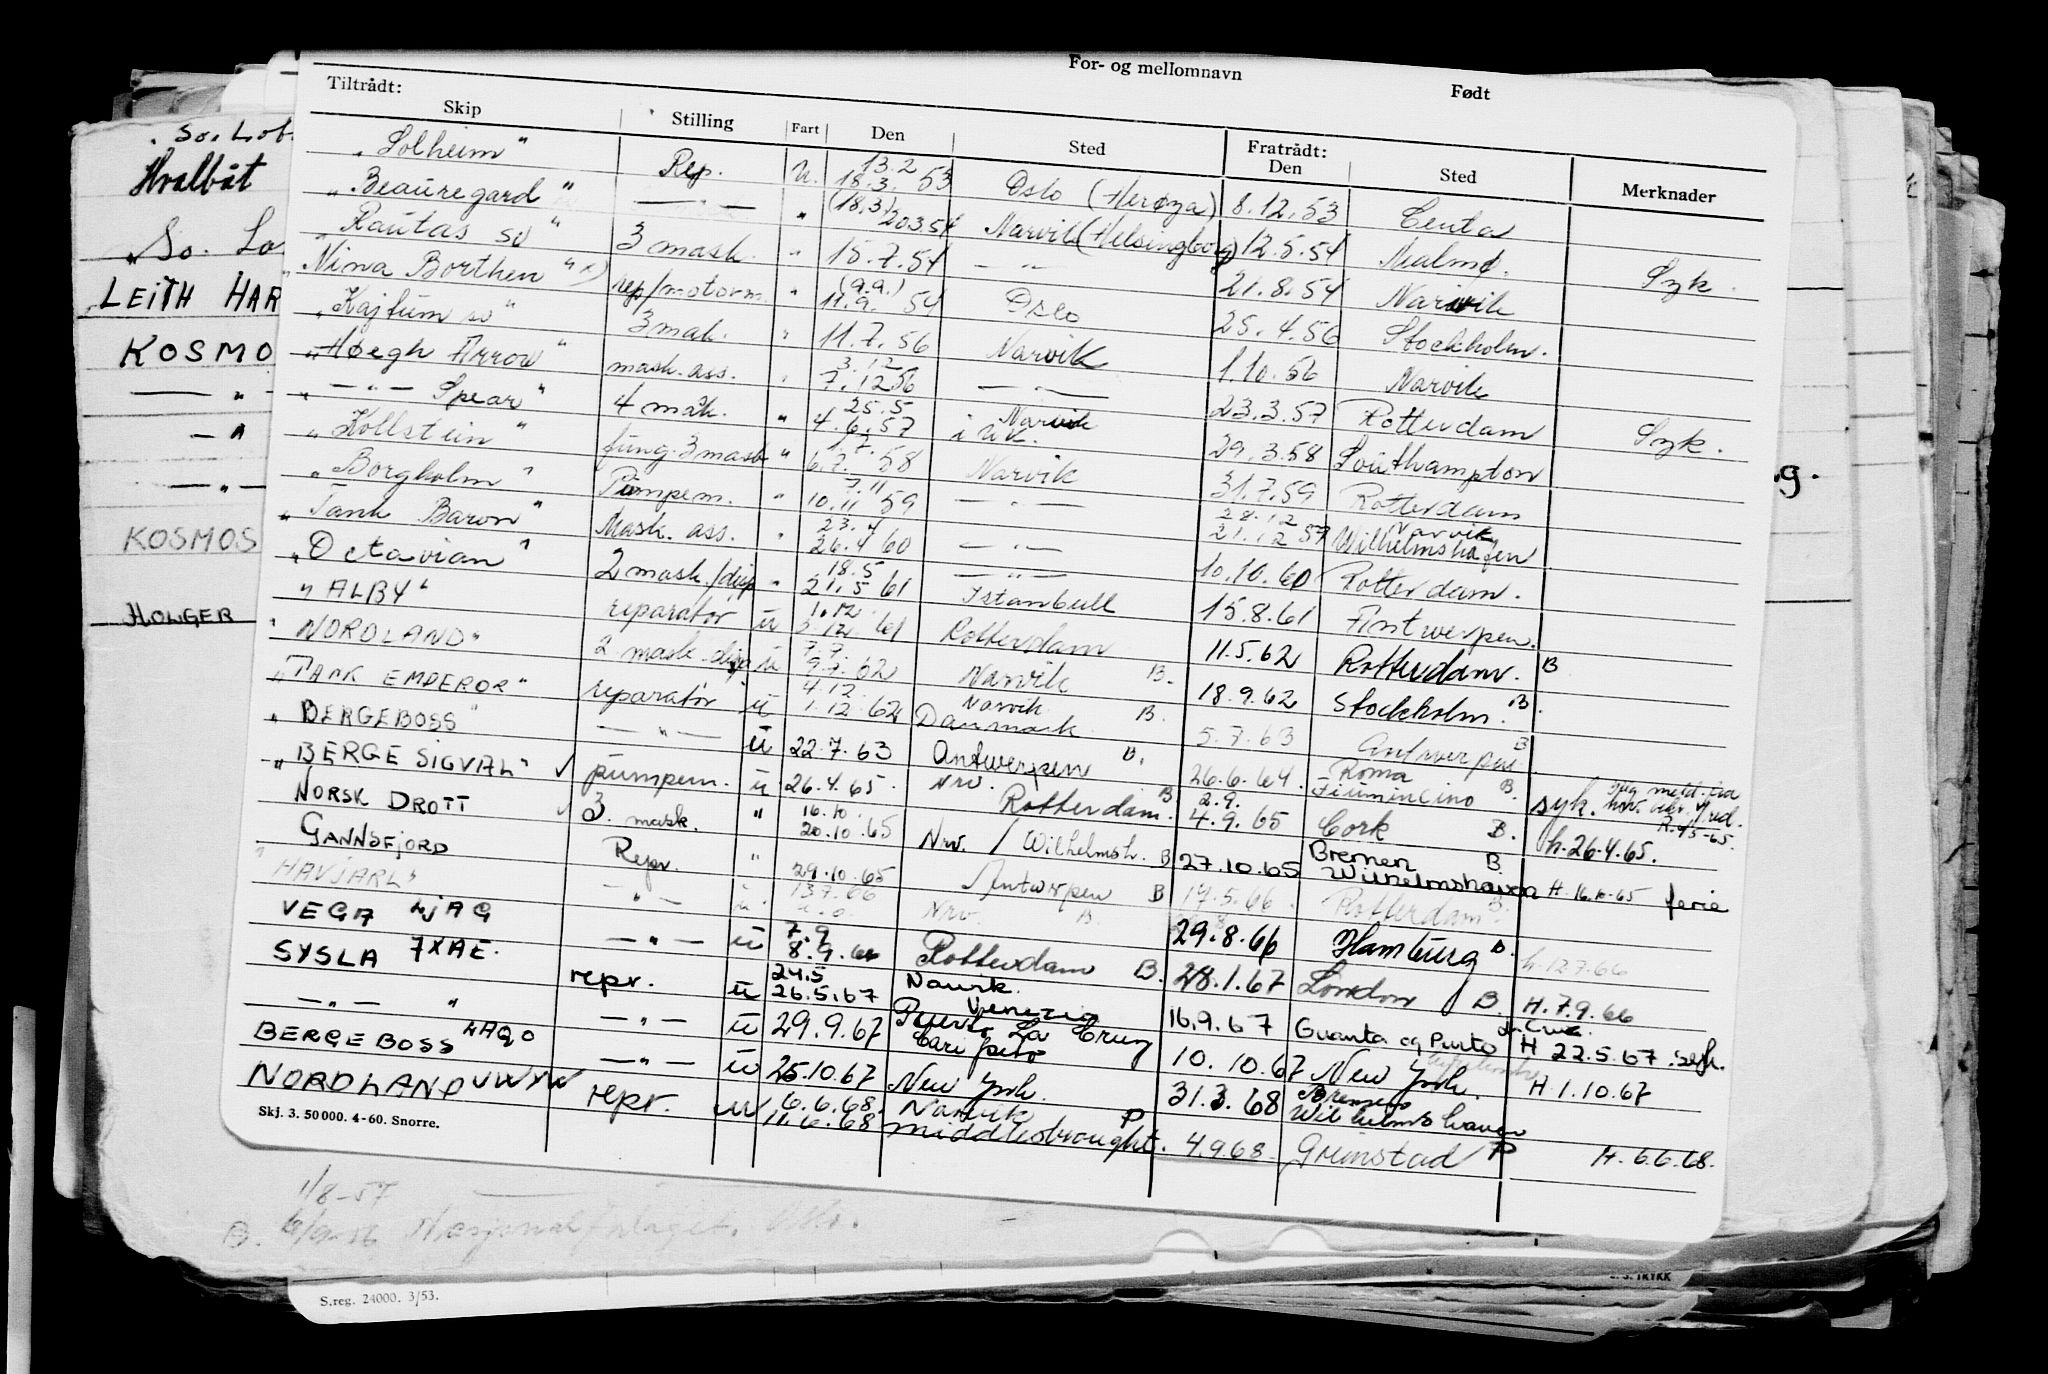 For- og mellomnavn Født
Tiltrådt: Fratrådt:
Skip Stilling Fart Den Sted Den Sted Merknader
"Solheim" Rep. U. 13.2 18.3. 53 Oslo (Herøya) 8.12.53 Ceuta
"Beauregard" — " — " (18.3) 20.3.54 Narvik (Helsingborg) 12.5.54 Malmø. Syk.
"Rautas so" 3 mask. " 15.7.54 — " — 21.8.54 Narvik
"Nina Borthen" x) rep/motorm. " (9.9.) 11.9. 54 Oslo 25.4.56 Stockholm.
"Kajtum so" 3 mak. " 11.7.56 Narvik 1.10.56 Narvik
"Høegh Arrow" mask. ass. " 3.12 7.12 56 — " — 23.3.57 Rotterdam Syk.
" — " — Spear" 4 mak. " 25.5 4.6.57 Narvik i UK. 29.3.58 Southampton
"Kollstein" fung. 3 mask " 1.7. 6.7. 58 Narvik 31.7.59 Rotterdam
"Borgholm" Pumpem. " 7.11 10.11 59 — " — 28.12 21.12 59 Narvik Wilhelmshafen
"Tank Baron" Mask. ass. " 23.4 26.4 60 — " — 10.10.60 Rotterdam.
"Octavian" 2 mask./disp " 18.5 21.5 61 — " — Istanbull 15.8.61 Antwerpen.
"ALBY" reparatør U 1.12. 3.12. 61 Rotterdam 11.5.62 Rotterdam. B
"NORDLAND" 2 mask. disp U 7.7. 9.7. 62 Narvik B. 18.9.62 Stockholm. B.
"TANK EMPEROR" reparatør U 4.12. 1.12. 62 Narvik Danmark B. 5.7.63 Antwerpen B
"BERGEBOSS" — " — U 22.7.63 Antwerpen B. 26.6.64 Roma Fiumincino B.
"BERGE SIGVAL" ✓ pumpem. U 26.4.65. Nrv. Rotterdam. B 2.9. 4.9.65 Cork B. syk. h. 26.4.65.
NORSK DROTT ✓ 3. mask. " 16.10. 20.10.65 Nrv. / Wilhelmsh. B 27.10.65 Bremen Wilhelmshaven B H. 16.10-65 ferie
GANNSFJORD Repr. " 29.10.65 Antwerpen B 14.5.66. Rotterdam B.
"HAVJARL" — " — U 13.7.66 Nrv. B. 29.8.66 Hamburg B. h. 12.7.66
VEGA LJAG — " — U 7.9 8.9.66 Rotterdam B. 28.1.67 London B H. 7.9.66
SYSLA JXAE. repr. U 24.5 26.5.67 Narvik. Venezia 16.9.67 Guanta og Purto d. Cruz. H 22.5.67. syk.
— " — " — " — U 29.9.67 Puerto La Cruz Caripito 10.10.67 New York. H 1.10.67
BERGEBOSS LAQO — " — U 25.10.67 New York. 31.3.68 Bremen Wilhelmshaven
NORDLAND repr. U 6.6.68. 11.6.68 Narvik P middlesbrought. 4.9.68. Grimstad P H. 6.6.68.
Skj. 3. 50 000. 4-60. Snorre.
So. Lob
Hvalbåt
So. Lo
LEITH HAR
KOSMO
— " —
— "
— " —
KOSMOS
HOLGER
g.
1/8-57
B.
S.reg. 24000. 3/53.